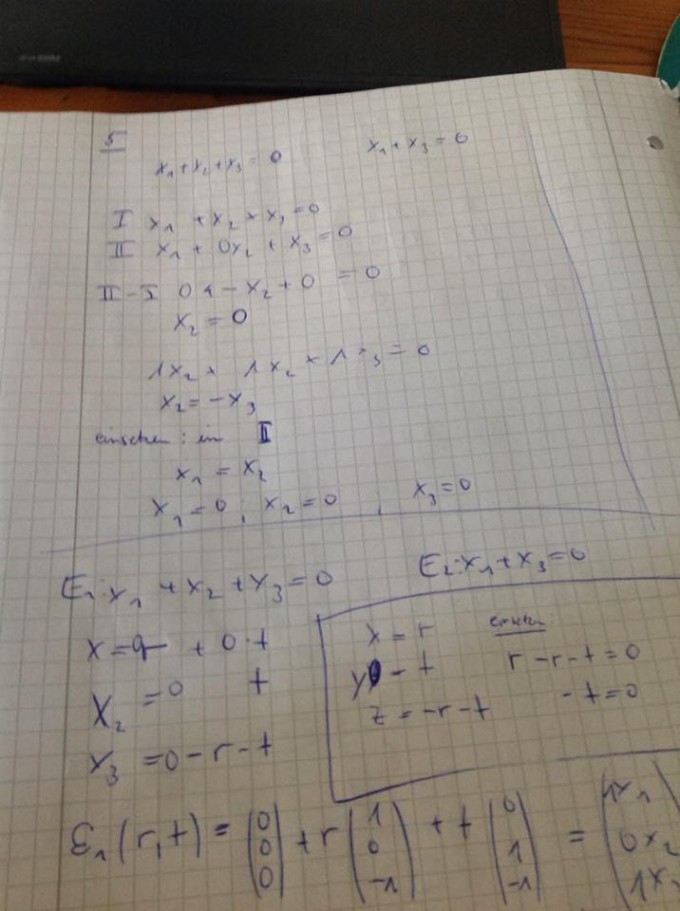 5
x₁+x₂+x₃=0 x₁+x₃=0
I x₁ +x₂+x₃=0
II x₁ + 0x₂ + x₃=0
II-I 0 - x₂+0 =0
x₂=0
1x₂+ 1x₂+1x₃=0
x₂=-x₃
einsetzen: in II
x₁ = x₂
x₁=0, x₂=0, x₃=0
E₁: x₁ +x₂+x₃=0 E₂: x₁+x₃=0
x = r + 0·t x = r einsetzen:
x₂ =0 t y - t r-r-t=0
x₃ =0-r-t z = -r-t -t=0
E₁(r,t) = (0 0 0) + r (1 0 -1) + t (0 1 -1) = (1x₁ 0x₂ 1x₃